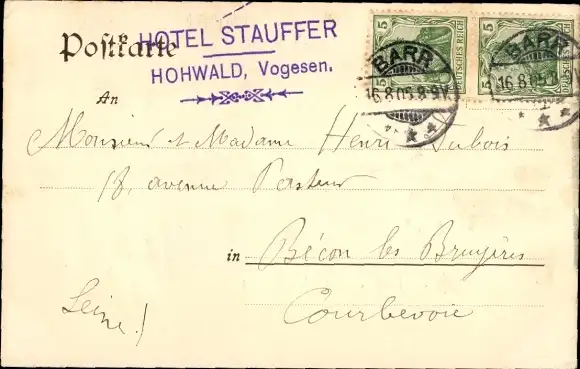 Postkarte
HOTEL STAUFFER
HOHWALD, Vogesen.
5 DEUTSCHES REICH 5
BARR
16.8.05.8-9V.
BARR
16.8.05.
An
Monsieur et Madame Henri Dubois
18, avenue Pasteur
in Bécon les Bruyères
Courbevoie
Seine!